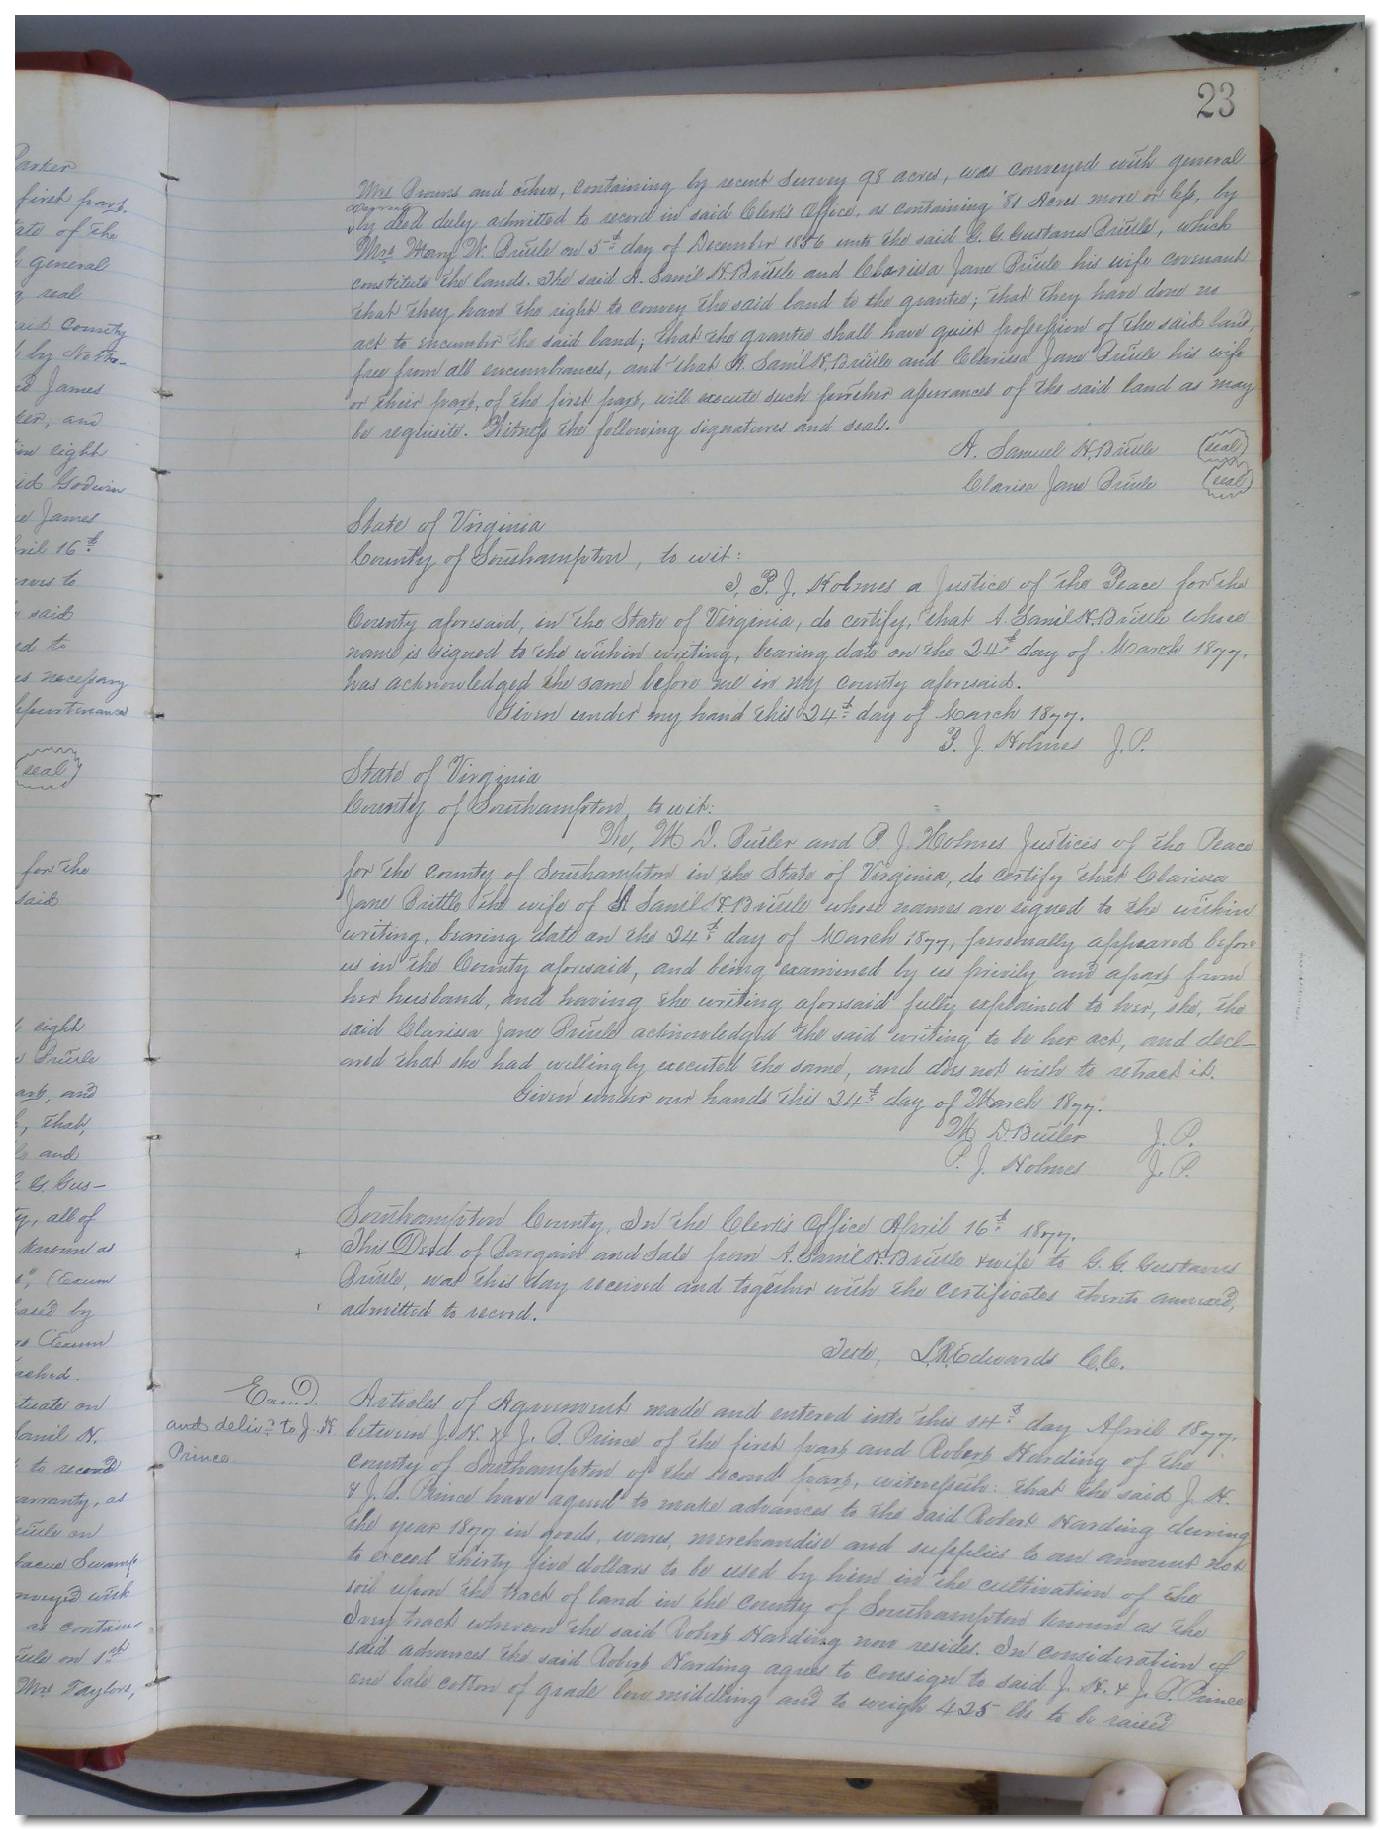 23
Parker
first part,
ate of the
general
real
County
by North-
James
ter, and
in eight
id Godwin
James
ril 16th
said
ed to
necessary
appurtenance
(seal)
for the
said
eight
Brittle
art, and
that,
and
G. Gus-
ty, all of
known as
Exum
ased by
Exum
ached.
ituate on
Saml N.
to record
arranty, as
on
Swamp
onveyed with
as contain-
ttle on 1st
Mrs Taylors,
Mrs Browns and others, containing by recent survey 98 acres, was conveyed with general
warranty
by deed duly admitted to record in said Clerk's Office, as containing 81 Acres more or less, by
Mrs Mary W. Brittle on 5th day of December 1856 unto the said G. G. Gustavus Brittle, which
constitute the lands. The said A. Saml N. Brittle and Clarissa Jane Brittle his wife covenant
that they have the right to convey the said land to the grantee; that they have done no
act to encumber the said land; that the grantee shall have quiet possession of the said land,
free from all encumbrances, and that A. Saml N. Brittle and Clarissa Jane Brittle his wife
or their part, of the first part, will execute such further assurances of the said land as may
be requisite. Witness the following signatures and seals.
A. Samuel N. Brittle (seal)
Clarisa Jane Brittle (seal)
State of Virginia
County of Southampton, to wit:
I, P. J. Holmes a Justice of the Peace for the
County aforesaid, in the State of Virginia, do certify, that A. Saml N. Brittle whose
name is signed to the within writing, bearing date on the 24th day of March 1877.
has acknowledged the same before me in my county aforesaid.
Given under my hand this 24th day of March 1877.
P. J. Holmes J. P.
State of Virginia
County of Southampton, to wit:
We, M. D. Butler and P. J. Holmes Justices of the Peace
for the county of Southampton in the State of Virginia, do certify that Clarissa
Jane Brittle the wife of A Saml N. Brittle whose names are signed to the within
writing, bearing date on the 24th day of March 1877, personally appeared before
us in the County aforesaid, and being examined by us privily and apart from
her husband, and having the writing aforesaid fully explained to her, she, the
said Clarissa Jane Brittle acknowledged the said writing to be her act, and decl-
ared that she had willingly executed the same, and does not wish to retract it.
Given under our hands this 24th day of March 1877.
M. D. Butler J. P.
P. J. Holmes J. P.
Southampton County, In the Clerk's Office April 16th 1877.
This Deed of Bargain and Sale from A. Saml N. Brittle & wife to G. G. Gustavus
Brittle, was this day received and together with the certificates thereto annexed,
admitted to record.
Teste, L. R. Edwards C.C.
Exd.
and delivd to J. H
Prince
Articles of Agreement made and entered into this 14th day April 1877.
between J. H. & J. P. Prince of the first part and Robert Harding of the
county of Southampton of the second part, witnesseth: that the said J. H.
& J. P. Prince have agreed to make advances to the said Robert Harding during
the year 1877 in goods, wares, merchandise and supplies to an amount not
to exceed thirty five dollars to be used by him in the cultivation of the
soil upon the tract of land in the county of Southampton known as the
Ivey tract whereon the said Robert Harding now resides. In consideration of
said advances the said Robert Harding agrees to consign to said J. H. & J. P. Prince
one bale cotton of grade low middling and to weigh 425 lbs to be raised